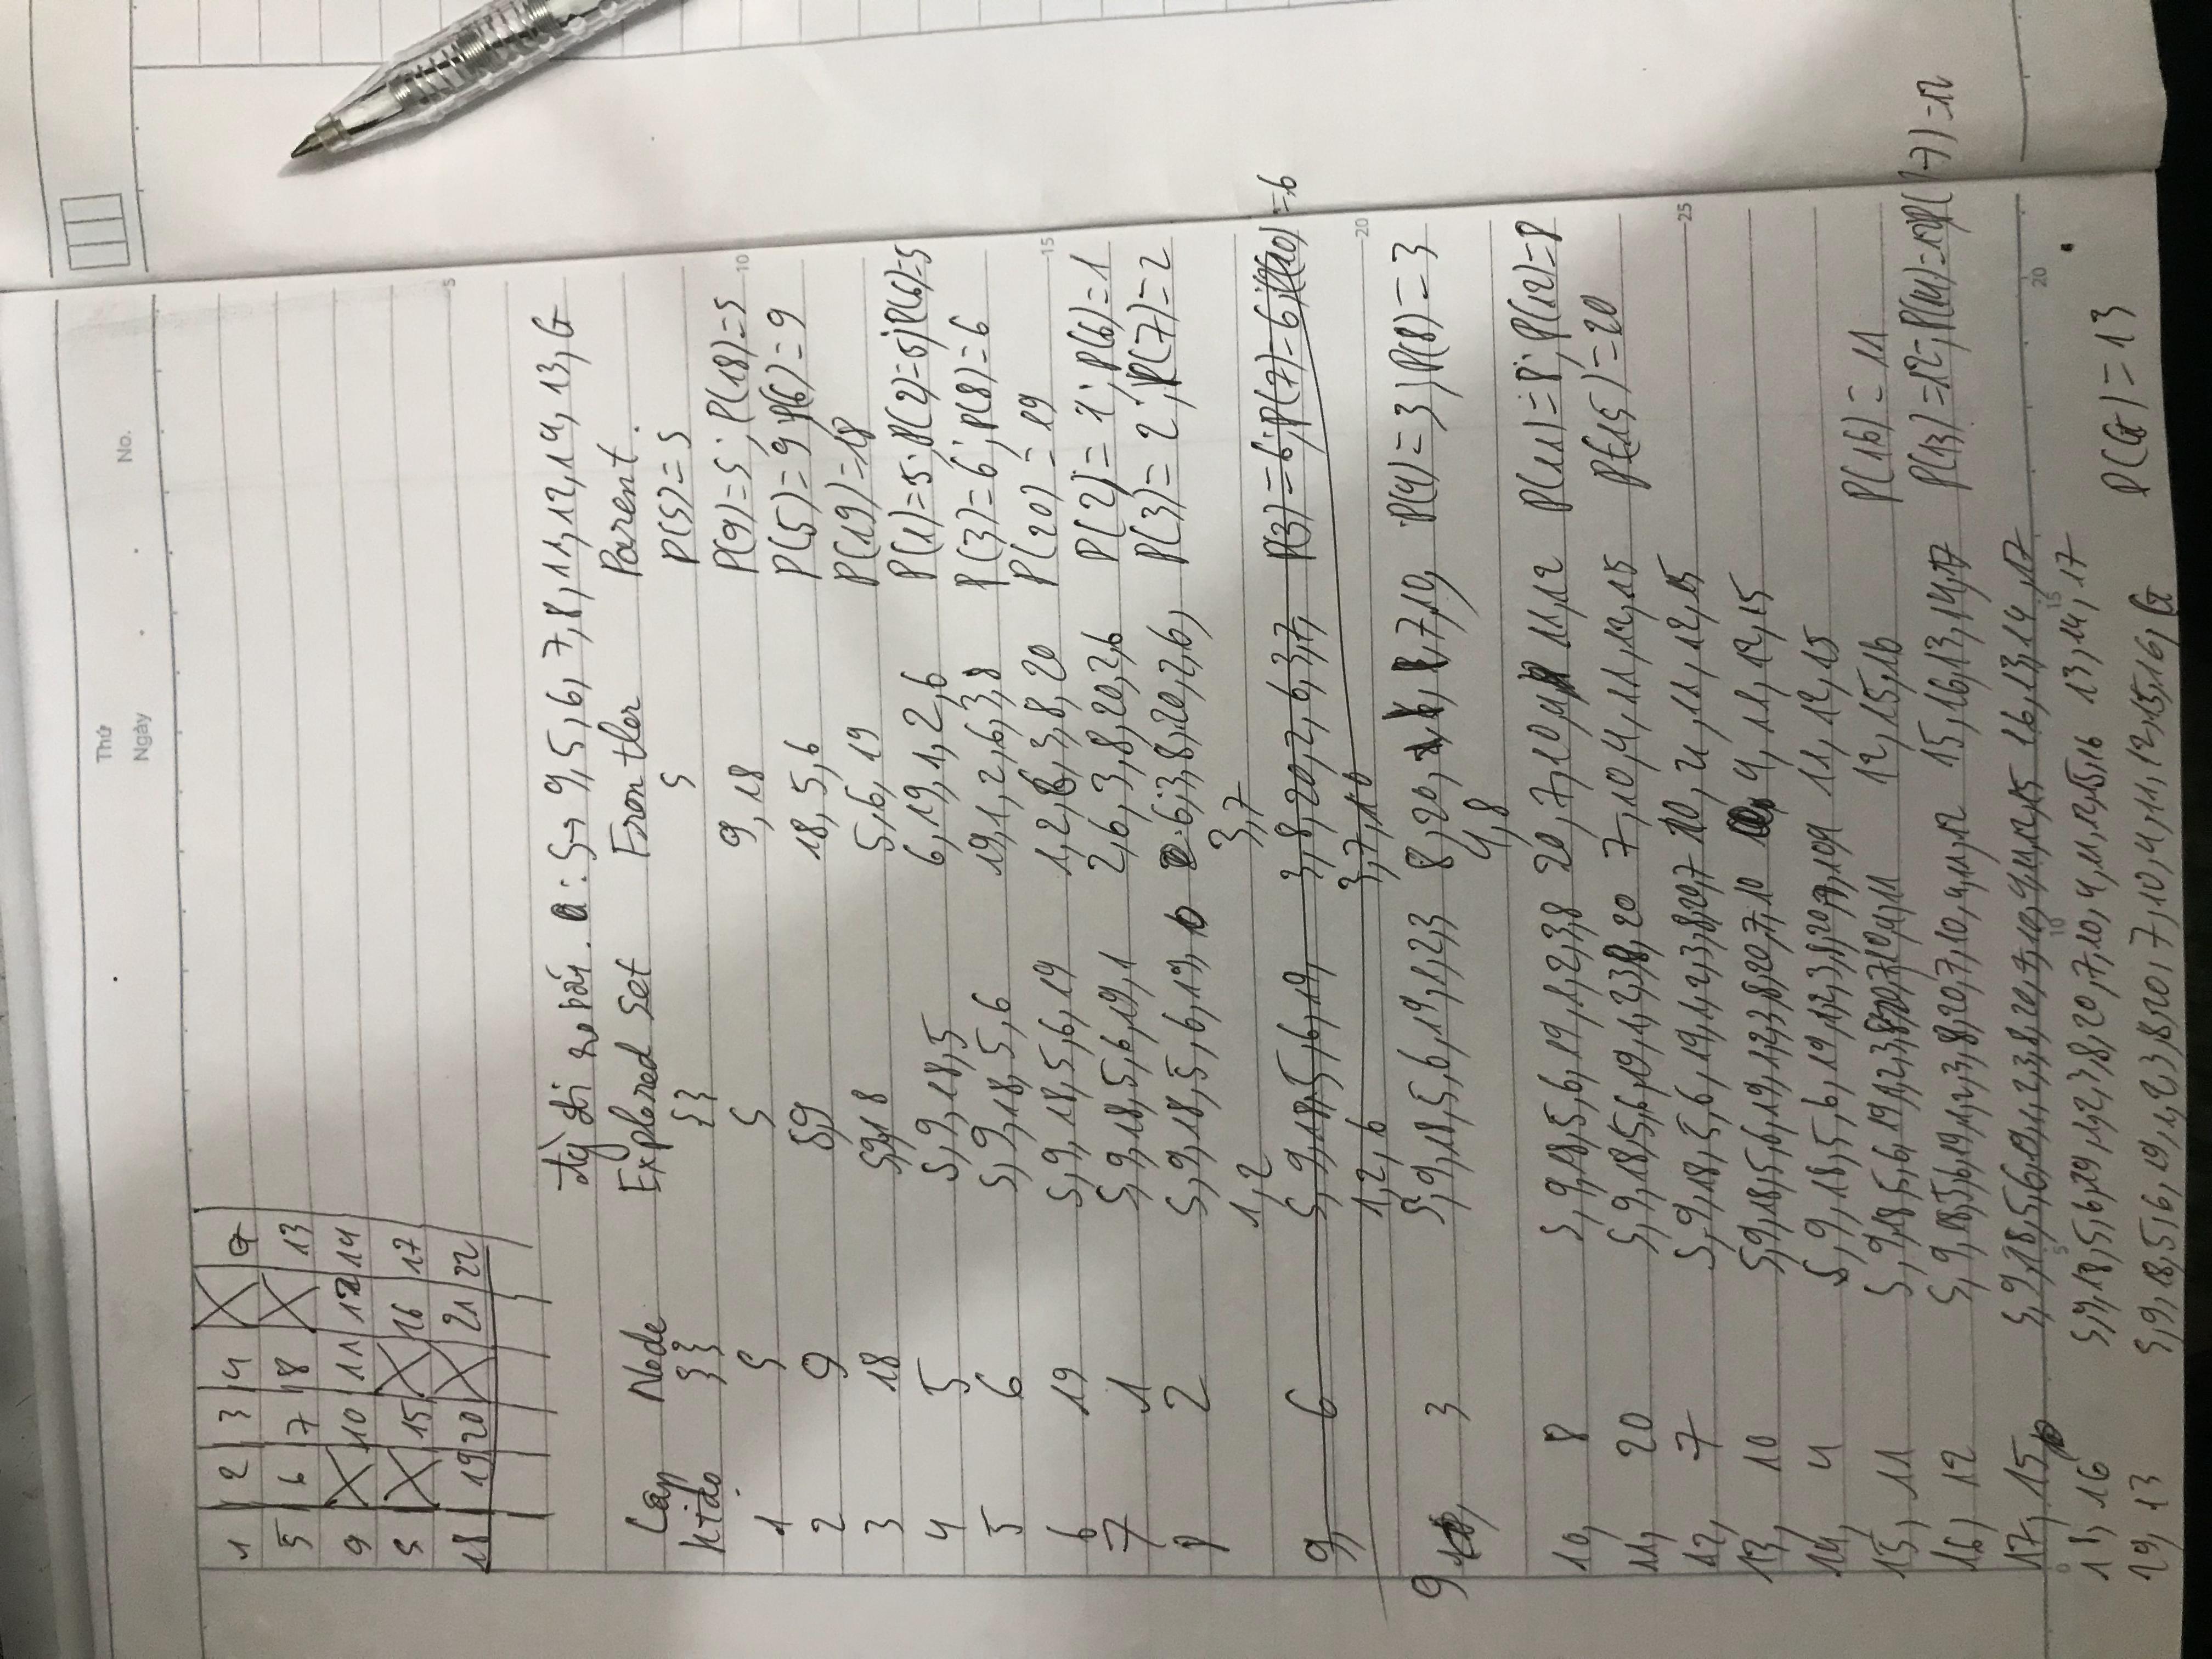 Thứ
Ngày
No.
1 2 3 4 X G
5 6 7 8 X 13
9 X 10 11 12 14
S X 15 X 16 17
18 19 20 X 21 22
5
: S→ 9,5,6,7,8,11,12,14,13,G
Lap Node Explored Set Frontier Parent.
Ktạo {} {} S P(S)=S
1 S S 9,18 P(9)=S; P(18)=S 10
2 9 S,9 18,5,6 P(5)=9 P(6)=9
3 18 S,9,18 5,6,19 P(19)=18
4 5 S,9,18,5 6,19,1,2,6 P(1)=5; P(2)=5; P(6)=5
5 6 S,9,18,5,6 19,1,2,6,3,8 P(3)=6; P(8)=6
6 19 S,9,18,5,6,19 1,2,6,3,8,20 P(20)=19 15
7 1 S,9,18,5,6,19,1 2,6,3,8,20,2,6 P(2)=1; P(6)=1
8 2 S,9,18,5,6,19, 6,3,8,20,2,6, P(3)=2; P(7)=2
1,2 3,7
9, 6 S,9,18,5,6,19, 3,8,20,2,6,3,7, P(3)=6; P(7)=6; P(10)=6
1,2,6 3,7,10 20
9 3 S,9,18,5,6,19,1,2,3 8,20, 7,10, P(4)=3; P(8)=3
4,8
10, 8 S,9,18,5,6,19,1,2,3,8 20,7,10,4, 11,12 P(11)=8; P(12)=8
11, 20 S,9,18,5,6,19,1,2,3,8,20 7,10,4,11,12,15 P(15)=20
12, 7 S,9,18,5,6,19,1,2,3,8,20,7 10,4,11,12,15 25
13, 10 S,9,18,5,6,19,1,2,3,8,20,7,10 4,11,12,15
14, 4 S,9,18,5,6,19,1,2,3,8,20,7,10,4 11,12,15
15, 11 S,9,18,5,6,19,1,2,3,8,20,7,10,4,11 12,15,16 P(16)=11
16, 12 S,9,18,5,6,19,1,2,3,8,20,7,10,4,11,12 15,16,13,14,17 P(13)=12; P(14)=12; P(17)=12
17, 15, S,9,18,5,6,19,1,2,3,8,20,7,10,4,11,12,15 16,13,14,17
0 5 10 15 20
18, 16 S,9,18,5,6,19,1,2,3,8,20,7,10,4,11,12,15,16 13,14,17
19, 13 S,9,18,5,6,19,1,2,3,8,20,7,10,4,11,12,15,16,G P(G)=13